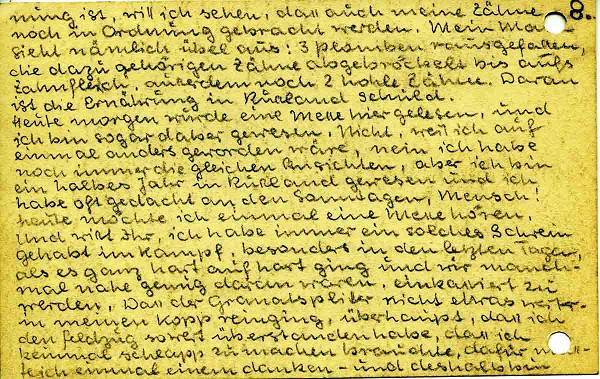 8.
nung ist, will ich sehen, dass auch meine Zähne
noch in Ordnung gebracht werden. Mein Maul
sieht nämlich übel aus: 3 Plomben rausgefallen,
die dazu gehörigen Zähne abgebröckelt bis aufs
Zahnfleisch, außerdem noch 2 hohle Zähne. Daran
ist die Ernährung in Rußland Schuld.
Heute morgen wurde eine Messe hier gelesen, und
ich bin sogar dabei gewesen. Nicht, weil ich auf
einmal anders geworden wäre, nein ich habe
noch immer die gleichen Ansichten, aber ich bin
ein halbes Jahr in Rußland gewesen und ich
habe oft gedacht an den Sonntagen, Mensch!
heute möchte ich einmal eine Messe hören.
Und wißt Ihr, ich habe immer ein solches Schwein
gehabt im Kampf, besonders in den letzten Tagen,
als es ganz hart auf hart ging und wir manch-
mal nahe genug daran waren, einkassiert zu
werden. Dass der Granatsplitter nicht etwas weiter
in meinen Kopp reinging, überhaupt, dass ich
den Feldzug soweit überstanden habe, dass ich
keinmal schlapp zu machen brauchte, dafür
ich einmal einem danken - und deshalb bin